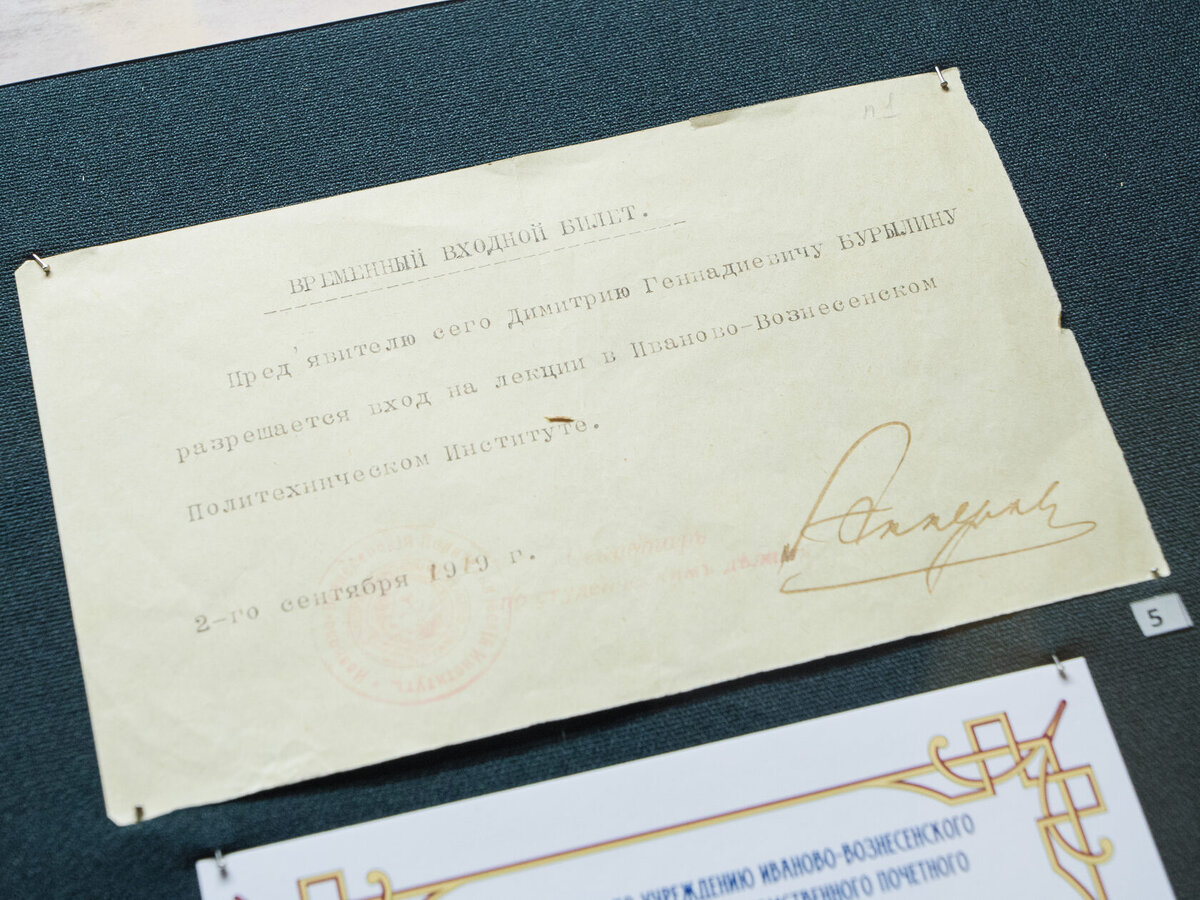 п 1
ВРЕМЕННЫЙ ВХОДНОЙ БИЛЕТ.
Пред'явителю сего Димитрию Геннадиевичу БУРЫЛИНУ
разрешается вход на лекции в Иваново-Вознесенском
Политехническом Институте.
2-го сентября 1919 г.
по студенч.
Институтъ
5
УЧРЕЖДЕНИЮ ИВАНОВО-ВОЗНЕСЕНСКОГО
ПОЧЕТНОГО